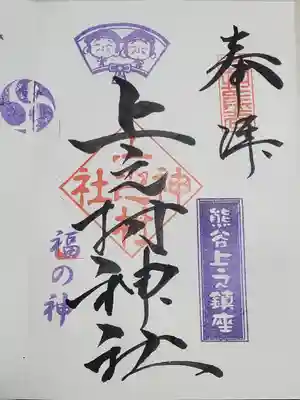 奉拝
熊谷上之鎮座
上之村神社
福の神